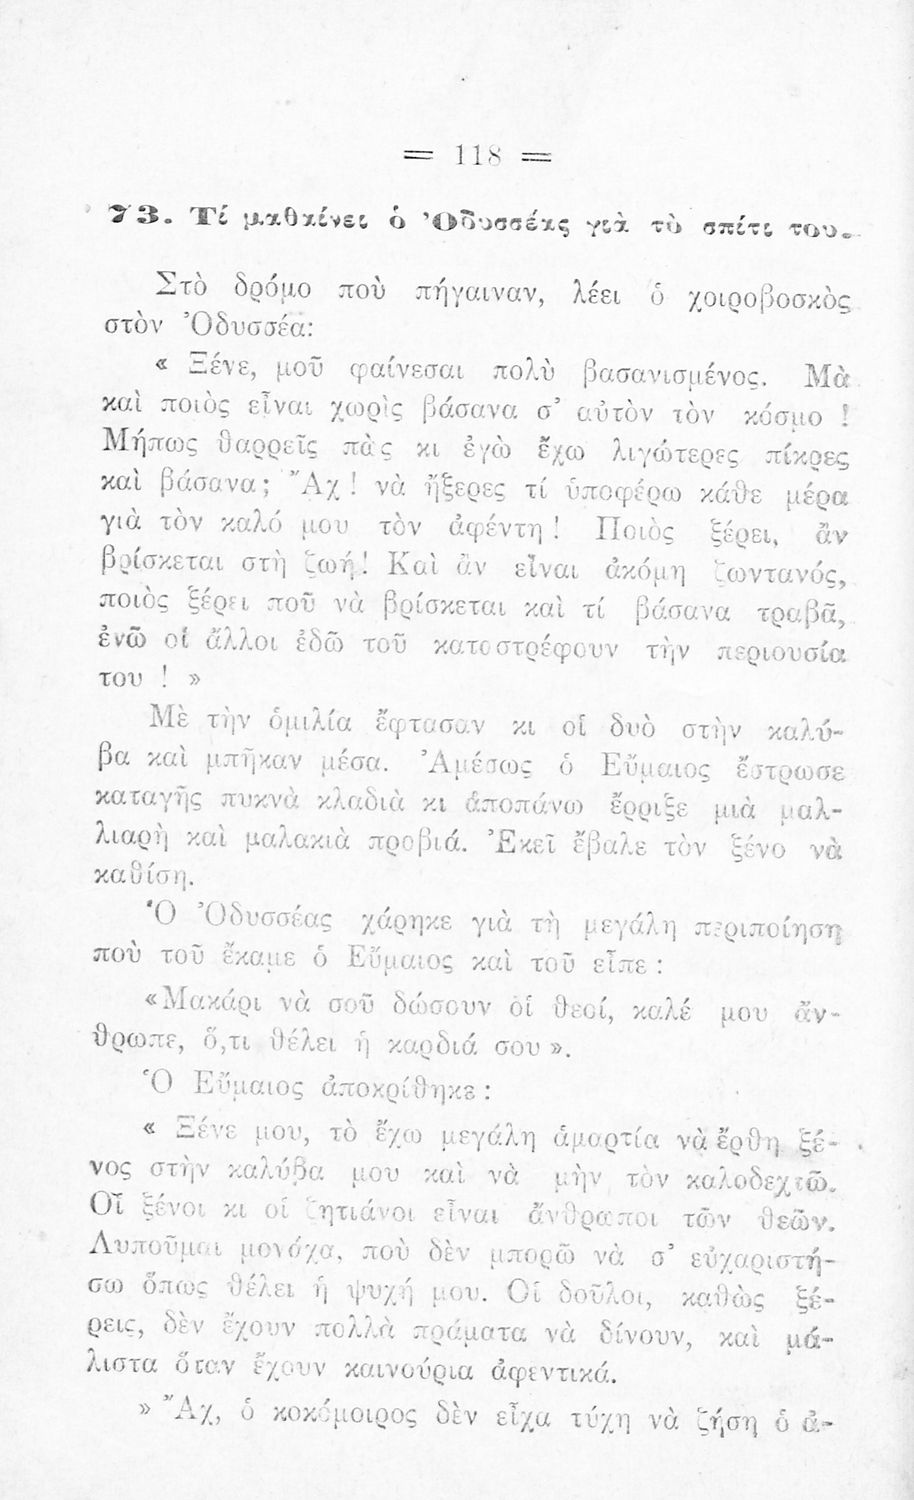 = 118 =
73. Τί μαθαίνει ὁ Ὀδυσσέας γιὰ τὸ σπίτι του.
Στὸ δρόμο ποὺ πήγαιναν, λέει ὁ χοιροβοσκὸς
στὸν Ὀδυσσέα:
« Ξένε, μοῦ φαίνεσαι πολὺ βασανισμένος. Μὰ
καὶ ποιὸς εἶναι χωρὶς βάσανα σ' αὐτὸν τὸν κόσμο !
Μήπως θαρρεῖς πὰς κι ἐγὼ ἔχω λιγώτερες πίκρες
καὶ βάσανα; Ἄχ! νὰ ἤξερες τί ὑποφέρω κάθε μέρα
γιὰ τὸν καλό μου τὸν ἀφέντη! Ποιὸς ξέρει, ἂν
βρίσκεται στὴ ζωή! Καὶ ἂν εἶναι ἀκόμη ζωντανός,
ποιὸς ξέρει ποῦ νὰ βρίσκεται καὶ τί βάσανα τραβᾶ,
ἐνῶ οἱ ἄλλοι ἐδῶ τοῦ καταστρέφουν τὴν περιουσία
του ! »
Μὲ τὴν ὁμιλία ἔφτασαν κι οἱ δυὸ στὴν καλύ-
βα καὶ μπῆκαν μέσα. Ἀμέσως ὁ Εὔμαιος ἔστρωσε
καταγῆς πυκνὰ κλαδιὰ κι ἀποπάνω ἔρριξε μιὰ μαλ-
λιαρὴ καὶ μαλακιὰ προβιά. Ἐκεῖ ἔβαλε τὸν ξένο νὰ
καθίση.
Ὁ Ὀδυσσέας χάρηκε γιὰ τὴ μεγάλη περιποίηση
ποὺ τοῦ ἔκαμε ὁ Εὔμαιος καὶ τοῦ εἶπε :
«Μακάρι νὰ σοῦ δώσουν οἱ θεοί, καλέ μου ἄν-
θρωπε, ὅ,τι θέλει ἡ καρδιά σου ».
Ὁ Εὔμαιος ἀποκρίθηκε :
« Ξένε μου, τὸ ἔχω μεγάλη ἁμαρτία νὰ ἔρθη ξέ-
νος στὴν καλύβα μου καὶ νὰ μὴν τὸν καλοδεχτῶ.
Οἱ ξένοι κι οἱ ζητιάνοι εἶναι ἄνθρωποι τῶν θεῶν.
Λυποῦμαι μονάχα, ποὺ δὲν μπορῶ νὰ σ' εὐχαριστή-
σω ὅπως θέλει ἡ ψυχή μου. Οἱ δοῦλοι, καθὼς ξέ-
ρεις, δὲν ἔχουν πολλὰ πράματα νὰ δίνουν, καὶ μά-
λιστα ὅταν ἔχουν καινούρια ἀφεντικά.
» Ἄχ, ὁ κοκόμοιρος δὲν εἶχα τύχη νὰ ζήση ὁ ἀ-